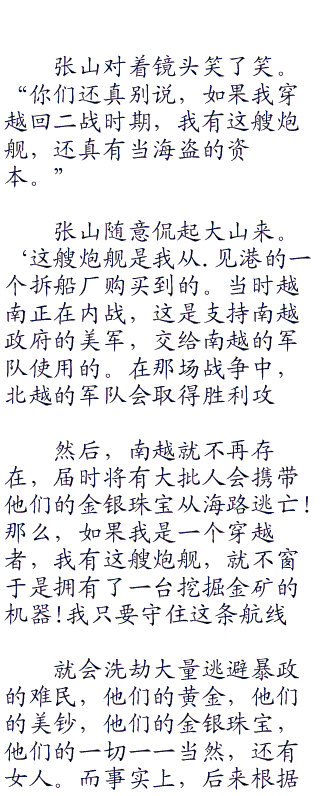 张山对着镜头笑了笑。
“你们还真别说，如果我穿
越回二战时期，我有这艘炮
舰，还真有当海盗的资
本。”
张山随意侃起大山来。
‘这艘炮舰是我从.见港的一
个拆船厂购买到的。当时越
南正在内战，这是支持南越
政府的美军，交给南越的军
队使用的。在那场战争中，
北越的军队会取得胜利攻
然后，南越就不再存
在，届时将有大批人会携带
他们的金银珠宝从海路逃亡！
那么，如果我是一个穿越
者，我有这艘炮舰，就不窗
于是拥有了一台挖掘金矿的
机器！我只要守住这条航线
就会洗劫大量逃避暴政
的难民，他们的黄金，他们
的美钞，他们的金银珠宝，
他们的一切一一当然，还有
女人。而事实上，后来根据